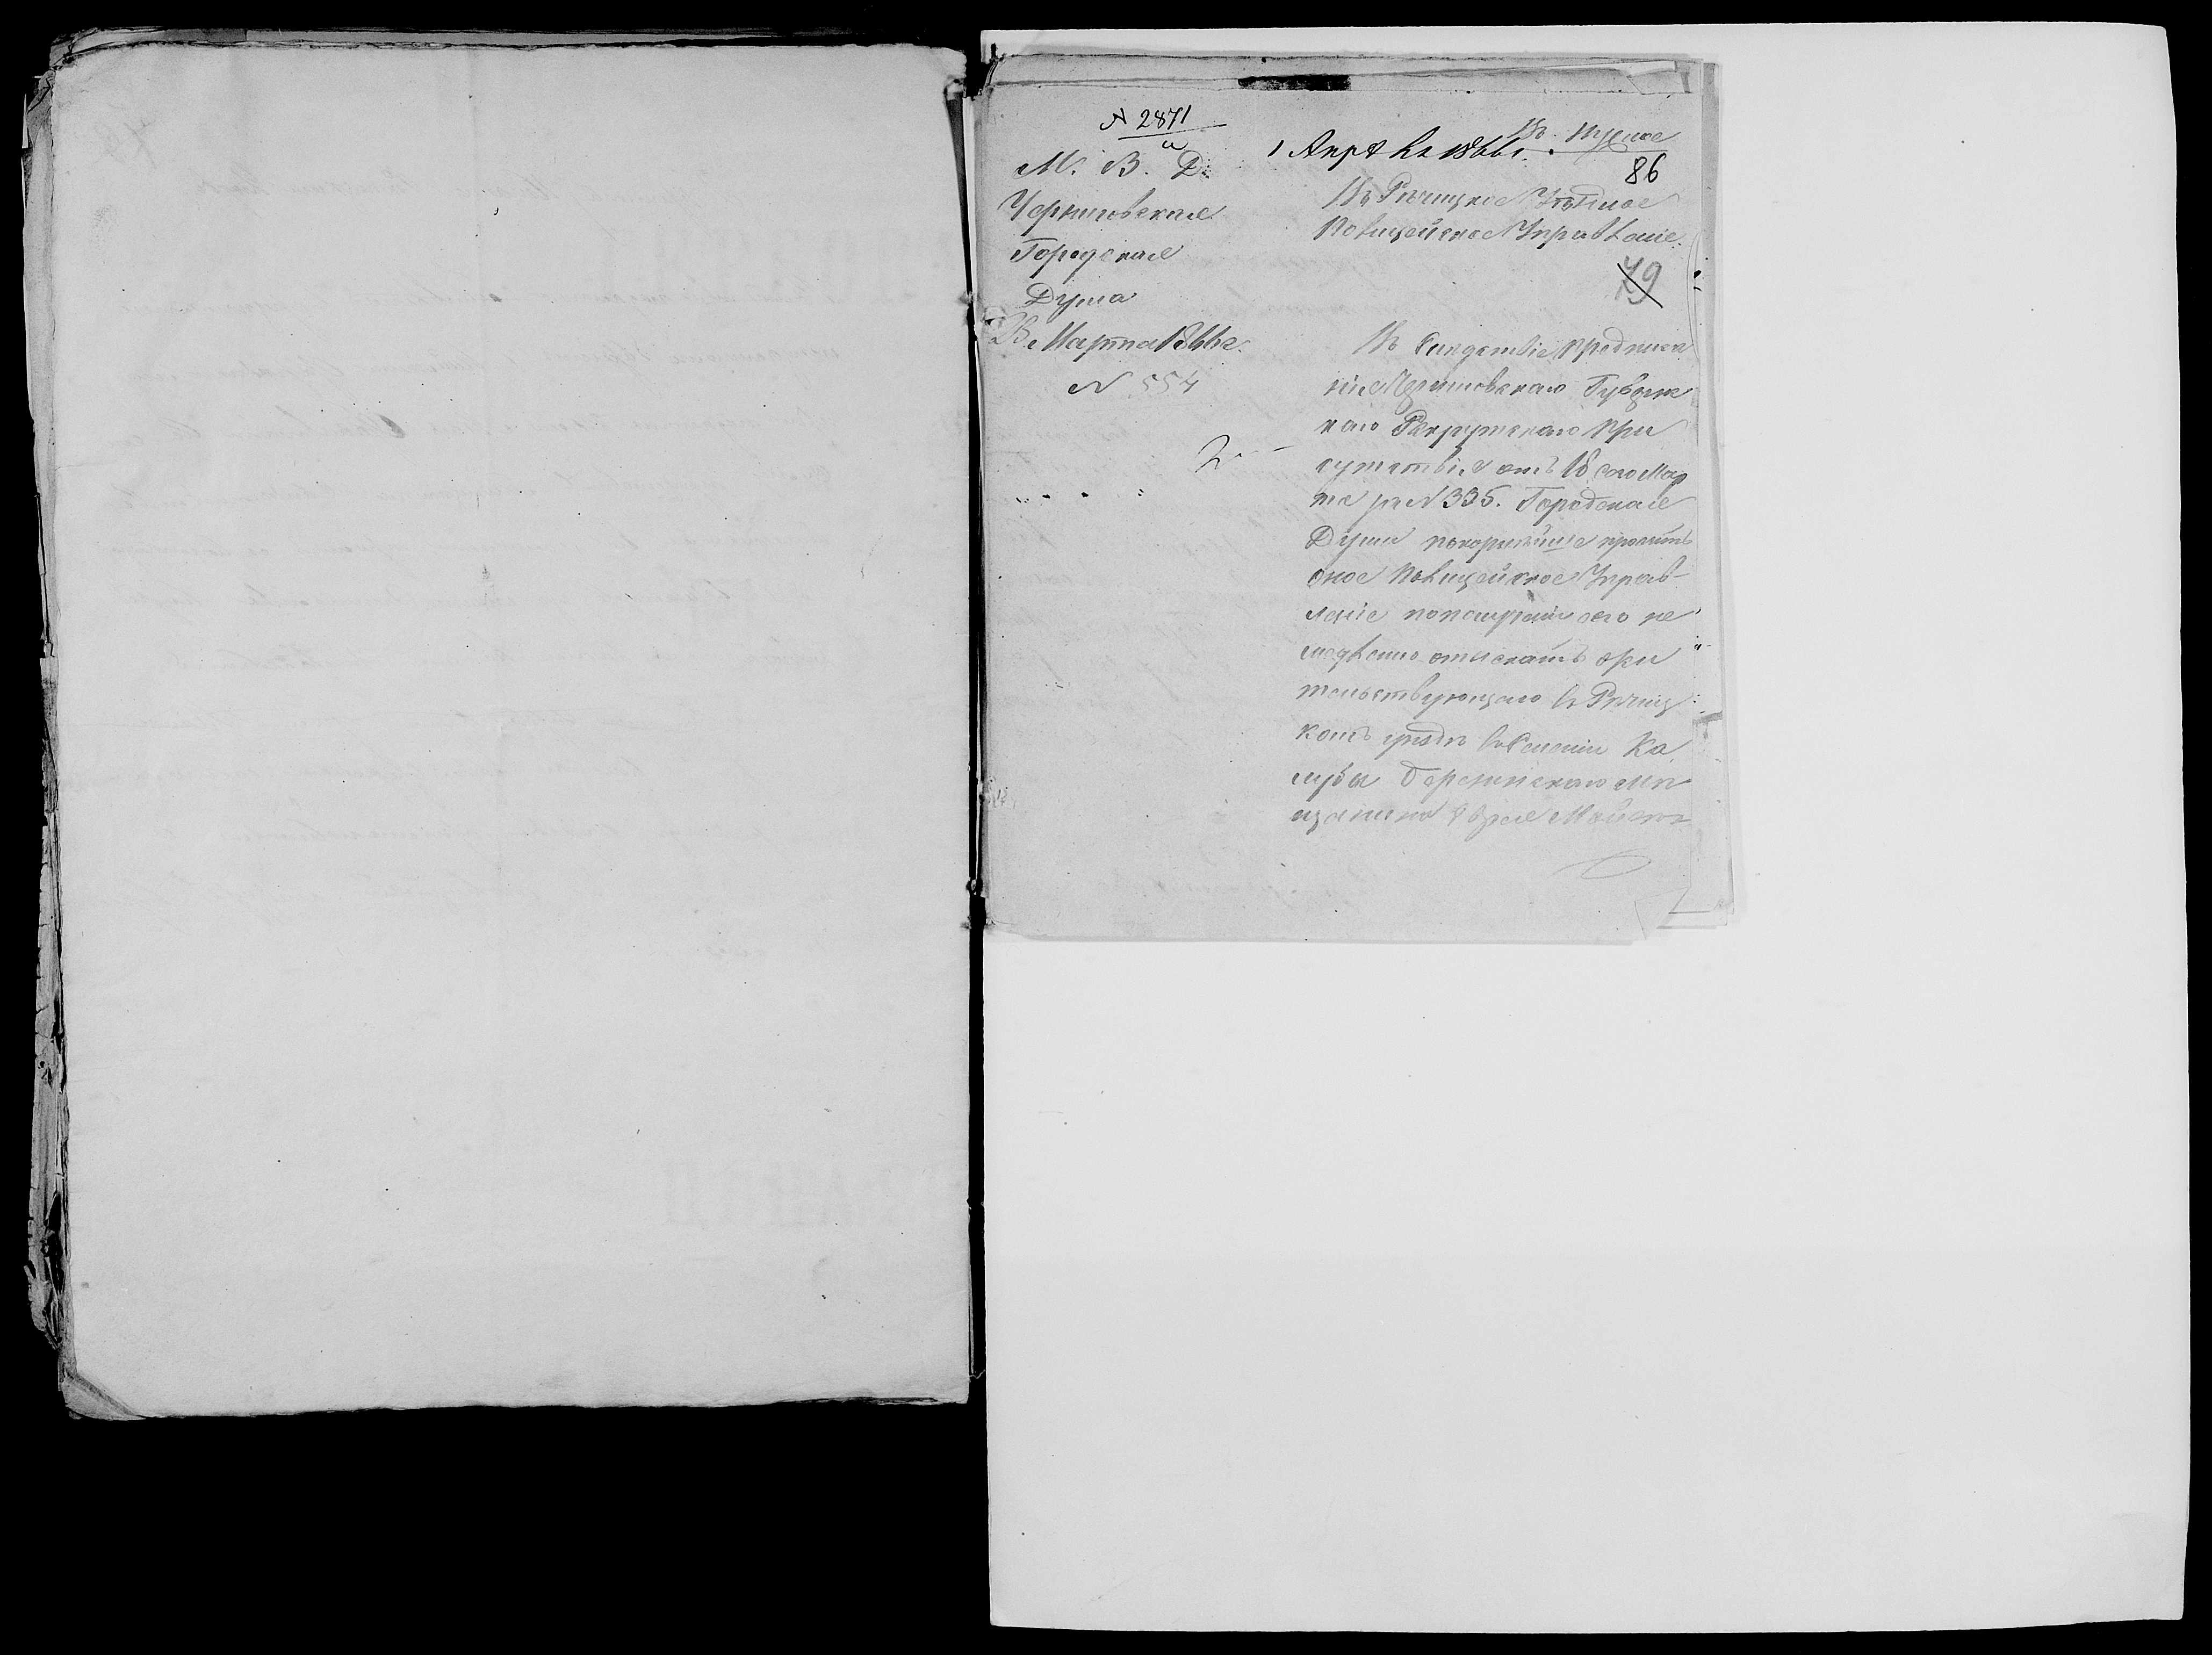 № 2871
М. В. Д.
Черниговская
Городская
Дума
Марта 1866 г.
№ 554
1 Апреля 1866 г. Нужное
86
Въ Речицкое Уѣздное
Полицейское Управленіе.
79
Въ слѣдствіе предписа
нія Черниговскаго Губернс
каго Рекрутскаго При
сутствія отъ 18 сего Мар
та за № 335. Городская
Дума покорнѣйше проситъ
оное Полицейское Управ-
леніе пополученіи сего не
медленно отыскать жи
тельствующаго въ Речиц
комъ уѣздѣ въ селеніи Ка
Березинскаго мѣ
щанина Еврея